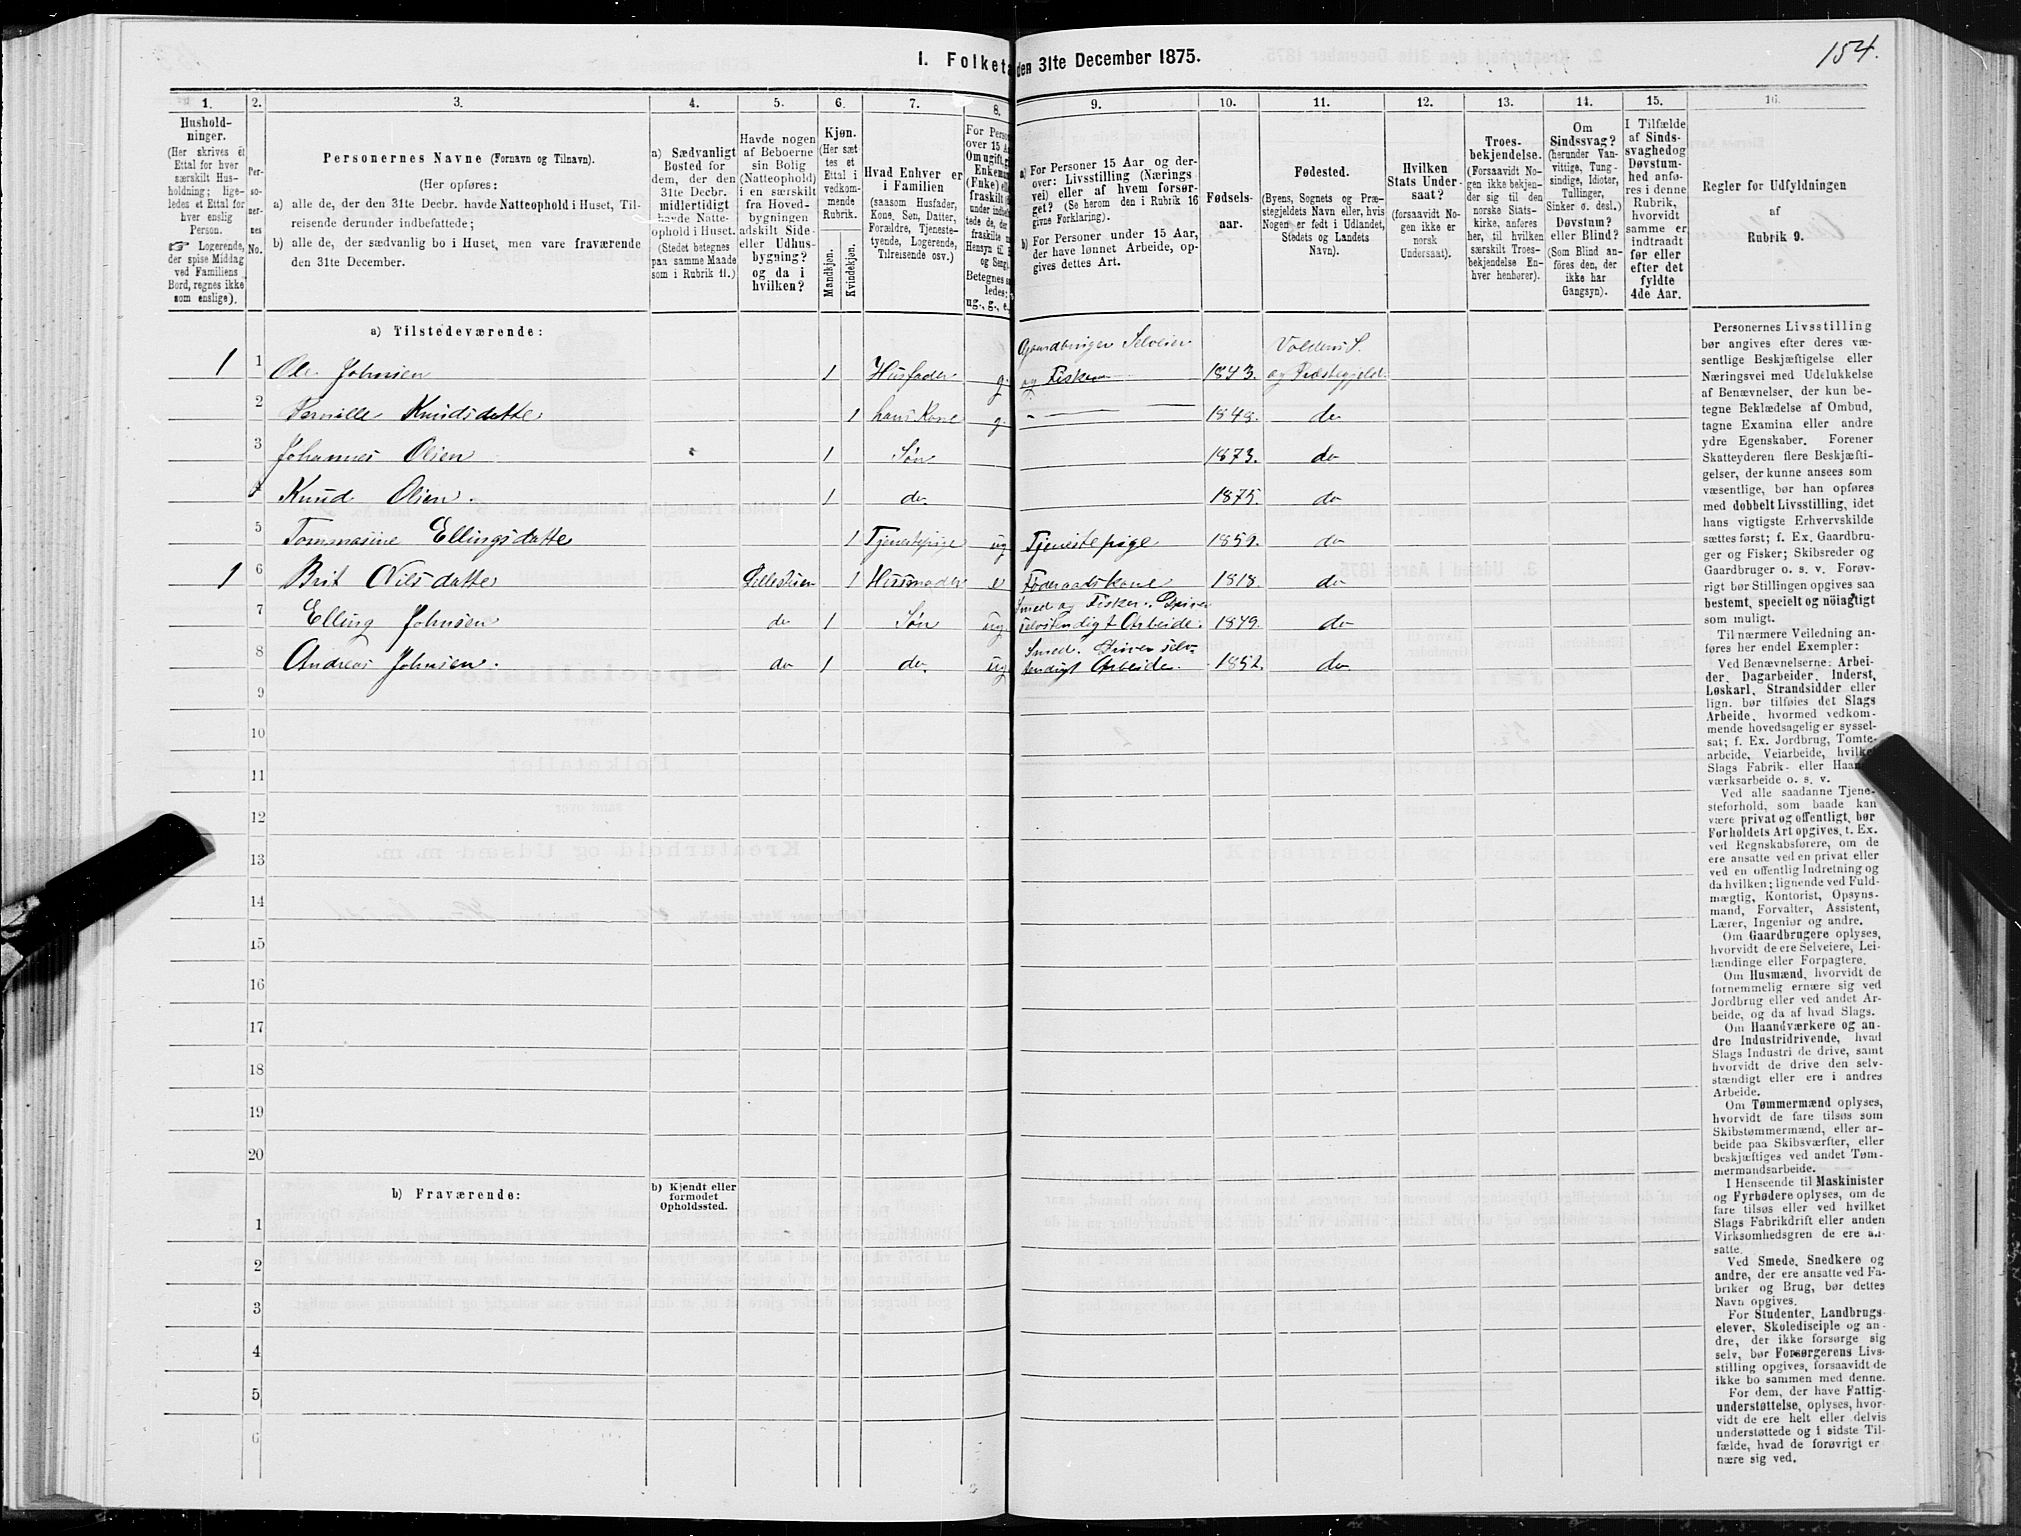 154.
I. Folketa
den 31te December 1875.
1. 2. 3. 4. 5. 6. 7. 8. 9. 10. 11. 12. 13. 14. 15. 16.
Hushold-
ninger.
(Her skrives ét
Ettal for hver
særskilt Hus-
holdning; lige-
ledes et Ettal for
hver enslig
Person.
☞ Logerende,
der spise Middag
ved Familiens
Bord, regnes ikke
som enslige).
Per-
so-
ner-
nes
No.
Personernes Navne (Fornavn og Tilnavn).
(Her opføres:
a) alle de, der den 31te Decbr. havde Natteophold i Huset, Til-
reisende derunder indbefattede;
b) alle de, der sædvanlig bo i Huset, men vare fraværende
den 31te December.
a) Sædvanligt
Bosted for
dem, der den
31te Decbr.
midlertidigt
havde Natte-
ophold i Huset.
(Stedet betegnes
paa samme Maade
som i Rubrik 11.)
Havde nogen
af Beboerne
sin Bolig
(Natteophold)
i en særskilt
fra Hoved-
bygningen
adskilt Side-
eller Udhus-
bygning?
og da i
hvilken?
Kjøn.
(Her sæt-
tes et
Ettal i
vedkom-
mende
Rubrik.
Mandkjøn.
Kvindekjøn.
Hvad Enhver er
i Familien
(saasom Husfader,
Kone, Søn, Datter,
Forældre, Tjeneste-
tyende, Logerende,
Tilreisende osv.)
For Perso
over 15 A
Om ugift, g
Enkem
(Enke) el
fraskilt
under indbe
tede de, de
fraskilte
Hensyn til B
og Seng).
Betegnes s
ledes:
ug., g., e.
a) For Personer 15 Aar og der-
over: Livsstilling (Nærings-
vei) eller af hvem forsør-
get? (Se herom den i Rubrik 16
givne Forklaring).
b) For Personer under 15 Aar,
der have lønnet Arbeide, op-
gives dettes Art.
Fødsels-
aar.
Fødested.
(Byens, Sognets og Præ-
stegjeldets Navn eller, hvis
Nogen er født i Udlandet,
Stedets og Landets
Navn).
Hvilken
Stats Under-
saat?
(forsaavidt No-
gen ikke er
norsk
Undersaat).
Troes-
bekjendelse.
(Forsaavidt No-
gen ikke bekjen-
der sig til den
norske Stats-
kirke, anføres
her, til hvilken
særskilt Troes-
bekjendelse En-
hver henhører).
Om
Sindssvag?
(herunder Van-
vittige, Tung-
sindige, Idioter,
Tullinger,
Sinker o. desl.)
Døvstum?
eller Blind?
(Som Blind an-
føres den, der
ikke har
Gangsyn).
I Tilfælde
af Sinds-
svaghed og
Døvstum-
hed anfø-
res i denne
Rubrik,
hvorvidt
samme er
indtraadt
før eller
efter det
fyldte
4de Aar.
Regler for Udfyldningen
af
Rubrik 9.
a) Tilstedeværende:
Gaardbruger Selveier Voldens S.
1 1 Ole Johnsen 1 Husfader g. og Fisker 1843. og Præstegjeld
2 Pernille Knudsdatte 1 hans Kone g. " 1848. do
3 Johannes Olsen 1 Søn 1873. do
4 Knud Olsen. 1 do 1875. do
5 Tommasine Ellingsdatte 1 Tjenestepige ug Tjenestepige 1859. do
1 6 Brit Nilsdatte 1 Husmoder e Føderaadskone 1818. do
Smed og Fisker. Driver
7 Elling Johnsen do 1 Søn ug. selvstendigt Arbeide. 1849. do
Smed. Driver selv-
8 Andreas Johnsen. do 1 do. ug tendigt Arbeide. 1852. do
9
10
11
12
13
14
15
16
17
18
19
20
b) Fraværende:
b) Kjendt eller
formodet
Opholdssted.
1
2
3
4
5
6
Personernes Livsstilling
bør angives efter deres væ-
sentlige Beskjæftigelse eller
Næringsvei med Udelukkelse
af Benævnelser, der kun be-
tegne Beklædelse af Ombud,
tagne Examina eller andre
ydre Egenskaber. Forener
Skatteyderen flere Beskjæfti-
gelser, der kunne ansees som
væsentlige, bør han opføres
med dobbelt Livsstilling, idet
hans vigtigste Erhvervskilde
sættes først; f. Ex. Gaardbru-
ger og Fisker; Skibsreder og
Gaardbruger o. s. v. Forøv-
rigt bør Stillingen opgives saa
bestemt, specielt og nøiagtigt
som muligt.
Til nærmere Veiledning an-
føres her endel Exempler:
Ved Benævnelserne: Arbei-
der, Dagarbeider, Inderst,
Løskarl, Strandsidder eller
lign. bør tilføies det Slags
Arbeide, hvormed vedkom-
mende hovedsagelig er syssel-
sat; f. Ex. Jordbrug, Tomte-
arbeide, Veiarbeide, hvilket
Slags Fabrik- eller Haand-
værksarbeide o. s. v.
Ved alle saadanne Tjene-
steforhold, som baade kan
være privat og offentligt, bør
Forholdets Art opgives, t. Ex.
ved Regnskabsførere, om de
ere ansatte ved en privat eller
ved en offentlig Indretning og
da hvilken; lignende ved Fuld-
mægtig, Kontorist, Opsyns-
mand, Forvalter, Assistent,
Lærer, Ingeniør og andre.
Om Gaardbrugere oplyses,
hvorvidt de ere Selveiere, Lei-
lændinge eller Forpagtere.
Om Husmænd, hvorvidt de
fornemmelig ernære sig ved
Jordbrug eller ved andet Ar-
beide, og da af hvad Slags.
Om Haandværkere og an-
dre Industridrivende, hvad
Slags Industri de drive, samt
hvorvidt de drive den selv-
stændigt eller ere i andres
Arbeide.
Om Tømmermænd oplyses,
hvorvidt de fare tilsøs som
Skibstømmermænd, eller ar-
beide paa Skibsværfter, eller
beskjæftiges ved andet Tøm-
mermandsarbeide.
I Henseende til Maskinister
og Fyrbødere oplyses, om de
fare tilsøs eller ved hvilket
Slags Fabrikdrift eller anden
Virksomhedsgren de ere an-
satte.
Ved Smede, Snedkere og
andre, der ere ansatte ved Fa-
briker og Brug, bør dettes
Navn opgives.
For Studenter, Landbrugs-
elever, Skoledisciple og an-
dre, der ikke forsørge sig
selv, bør Forsørgerens Livs-
stilling opgives, forsaavidt de
ikke bo sammen med denne.
For dem, der have Fattig-
understøttelse, oplyses, hvor-
vidt de ere helt eller delvis
understøttede og i sidste Til-
fælde, hvad de forøvrigt er-
nære sig ved.